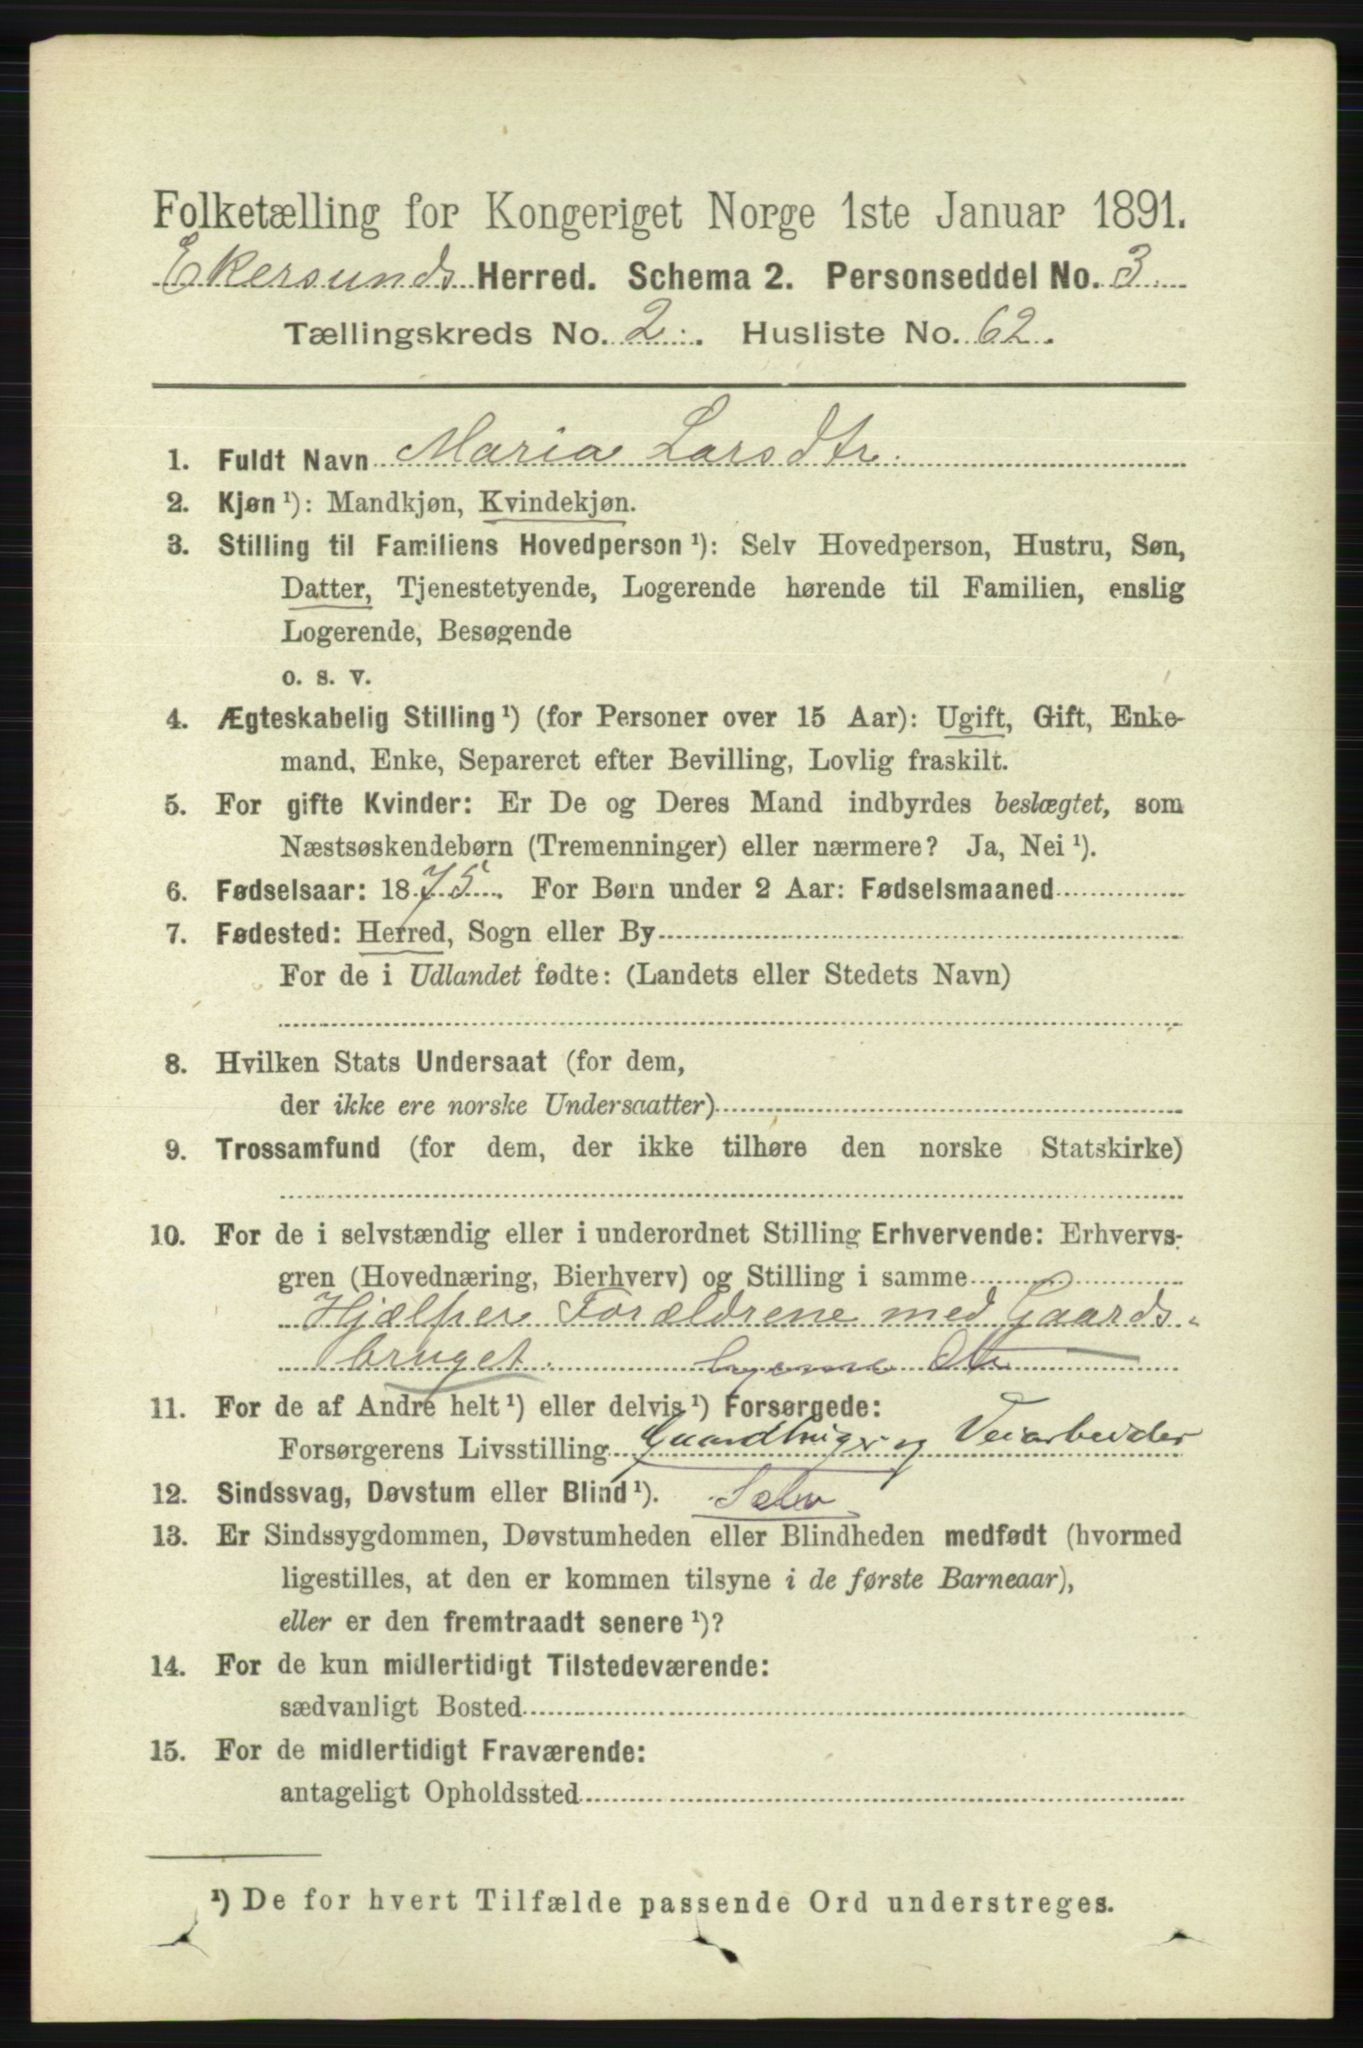 Folketælling for Kongeriget Norge 1ste Januar 1891.
Ekersunds Herred. Schema 2. Personseddel No. 3
Tællingskreds No. 2. Husliste No. 62.
1. Fuldt Navn Maria Larsdtr.
2. Kjøn ¹): Mandkjøn, Kvindekjøn.
3. Stilling til Familiens Hovedperson ¹): Selv Hovedperson, Hustru, Søn,
Datter, Tjenestetyende, Logerende hørende til Familien, enslig
Logerende, Besøgende
o. s. v.
4. Ægteskabelig Stilling ¹) (for Personer over 15 Aar): Ugift, Gift, Enke-
mand, Enke, Separeret efter Bevilling, Lovlig fraskilt.
5. For gifte Kvinder: Er De og Deres Mand indbyrdes beslægtet, som
Næstsøskendebørn (Tremenninger) eller nærmere? Ja, Nei ¹).
6. Fødselsaar: 1875. For Børn under 2 Aar: Fødselsmaaned
7. Fødested: Herred, Sogn eller By
For de i Udlandet fødte: (Landets eller Stedets Navn)
8. Hvilken Stats Undersaat (for dem,
der ikke ere norske Undersaatter)
9. Trossamfund (for dem, der ikke tilhøre den norske Statskirke)
10. For de i selvstændig eller i underordnet Stilling Erhvervende: Erhvervs-
gren (Hovednæring, Bierhverv) og Stilling i samme
Hjælper Forældrene med Gaards-
bruget.
11. For de af Andre helt ¹) eller delvis ¹) Forsørgede:
Forsørgerens Livsstilling Gaardbruger og Veiarbeider
12. Sindssvag, Døvstum eller Blind ¹).
13. Er Sindssygdommen, Døvstumheden eller Blindheden medfødt (hvormed
ligestilles, at den er kommen tilsyne i de første Barneaar),
eller er den fremtraadt senere ¹)?
14. For de kun midlertidigt Tilstedeværende:
sædvanligt Bosted
15. For de midlertidigt Fraværende:
antageligt Opholdssted
¹) De for hvert Tilfælde passende Ord understreges.